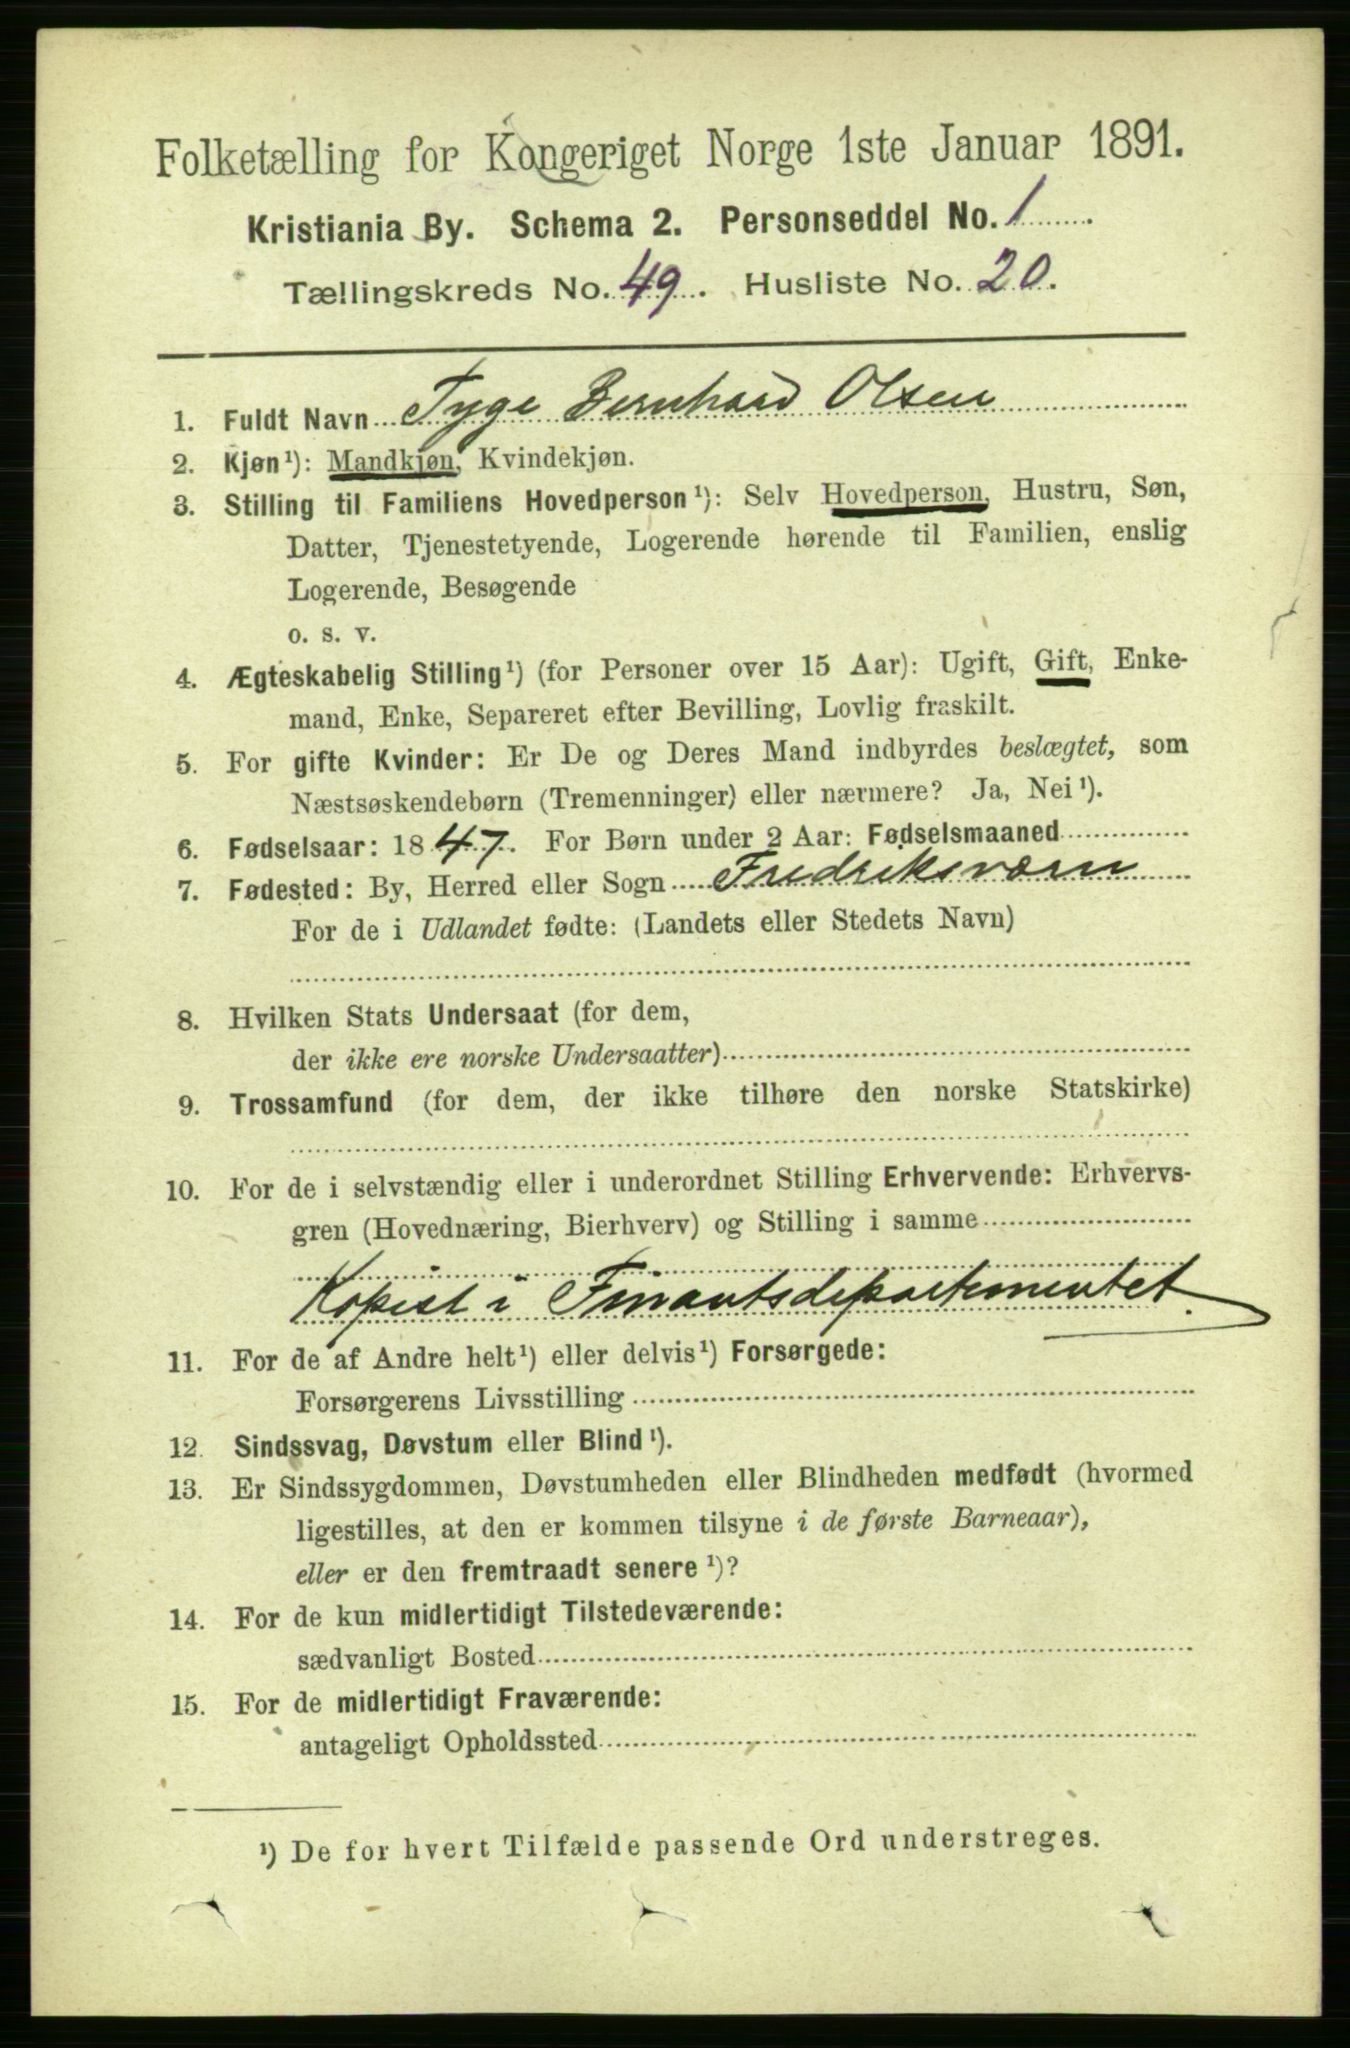 Folketælling for Kongeriget Norge 1ste Januar 1891.
Kristiania By. Schema 2. Personseddel No. 1
Tællingskreds No. 49. Husliste No. 20.
1. Fuldt Navn Tyge Bernhard Olsen
2. Kjøn¹): Mandkjøn, Kvindekjøn.
3. Stilling til Familiens Hovedperson¹): Selv Hovedperson, Hustru, Søn,
Datter, Tjenestetyende, Logerende hørende til Familien, enslig
Logerende, Besøgende
o. s. v.
4. Ægteskabelig Stilling¹) (for Personer over 15 Aar): Ugift, Gift, Enke-
mand, Enke, Separeret efter Bevilling, Lovlig fraskilt.
5. For gifte Kvinder: Er De og Deres Mand indbyrdes beslægtet, som
Næstsøskendebørn (Tremenninger) eller nærmere? Ja, Nei¹).
6. Fødselsaar: 1847. For Børn under 2 Aar: Fødselsmaaned
7. Fødested: By, Herred eller Sogn Fredriksværn
For de i Udlandet fødte: (Landets eller Stedets Navn)
8. Hvilken Stats Undersaat (for dem,
der ikke ere norske Undersaatter)
9. Trossamfund (for dem, der ikke tilhøre den norske Statskirke)
10. For de i selvstændig eller i underordnet Stilling Erhvervende: Erhvervs-
gren (Hovednæring, Bierhverv) og Stilling i samme
Kopist i Finantsdepartementet.
11. For de af Andre helt¹) eller delvis¹) Forsørgede:
Forsørgerens Livsstilling
12. Sindssvag, Døvstum eller Blind¹).
13. Er Sindssygdommen, Døvstumheden eller Blindheden medfødt (hvormed
ligestilles, at den er kommen tilsyne i de første Barneaar),
eller er den fremtraadt senere¹)?
14. For de kun midlertidigt Tilstedeværende:
sædvanligt Bosted
15. For de midlertidigt Fraværende:
antageligt Opholdssted
¹) De for hvert Tilfælde passende Ord understreges.